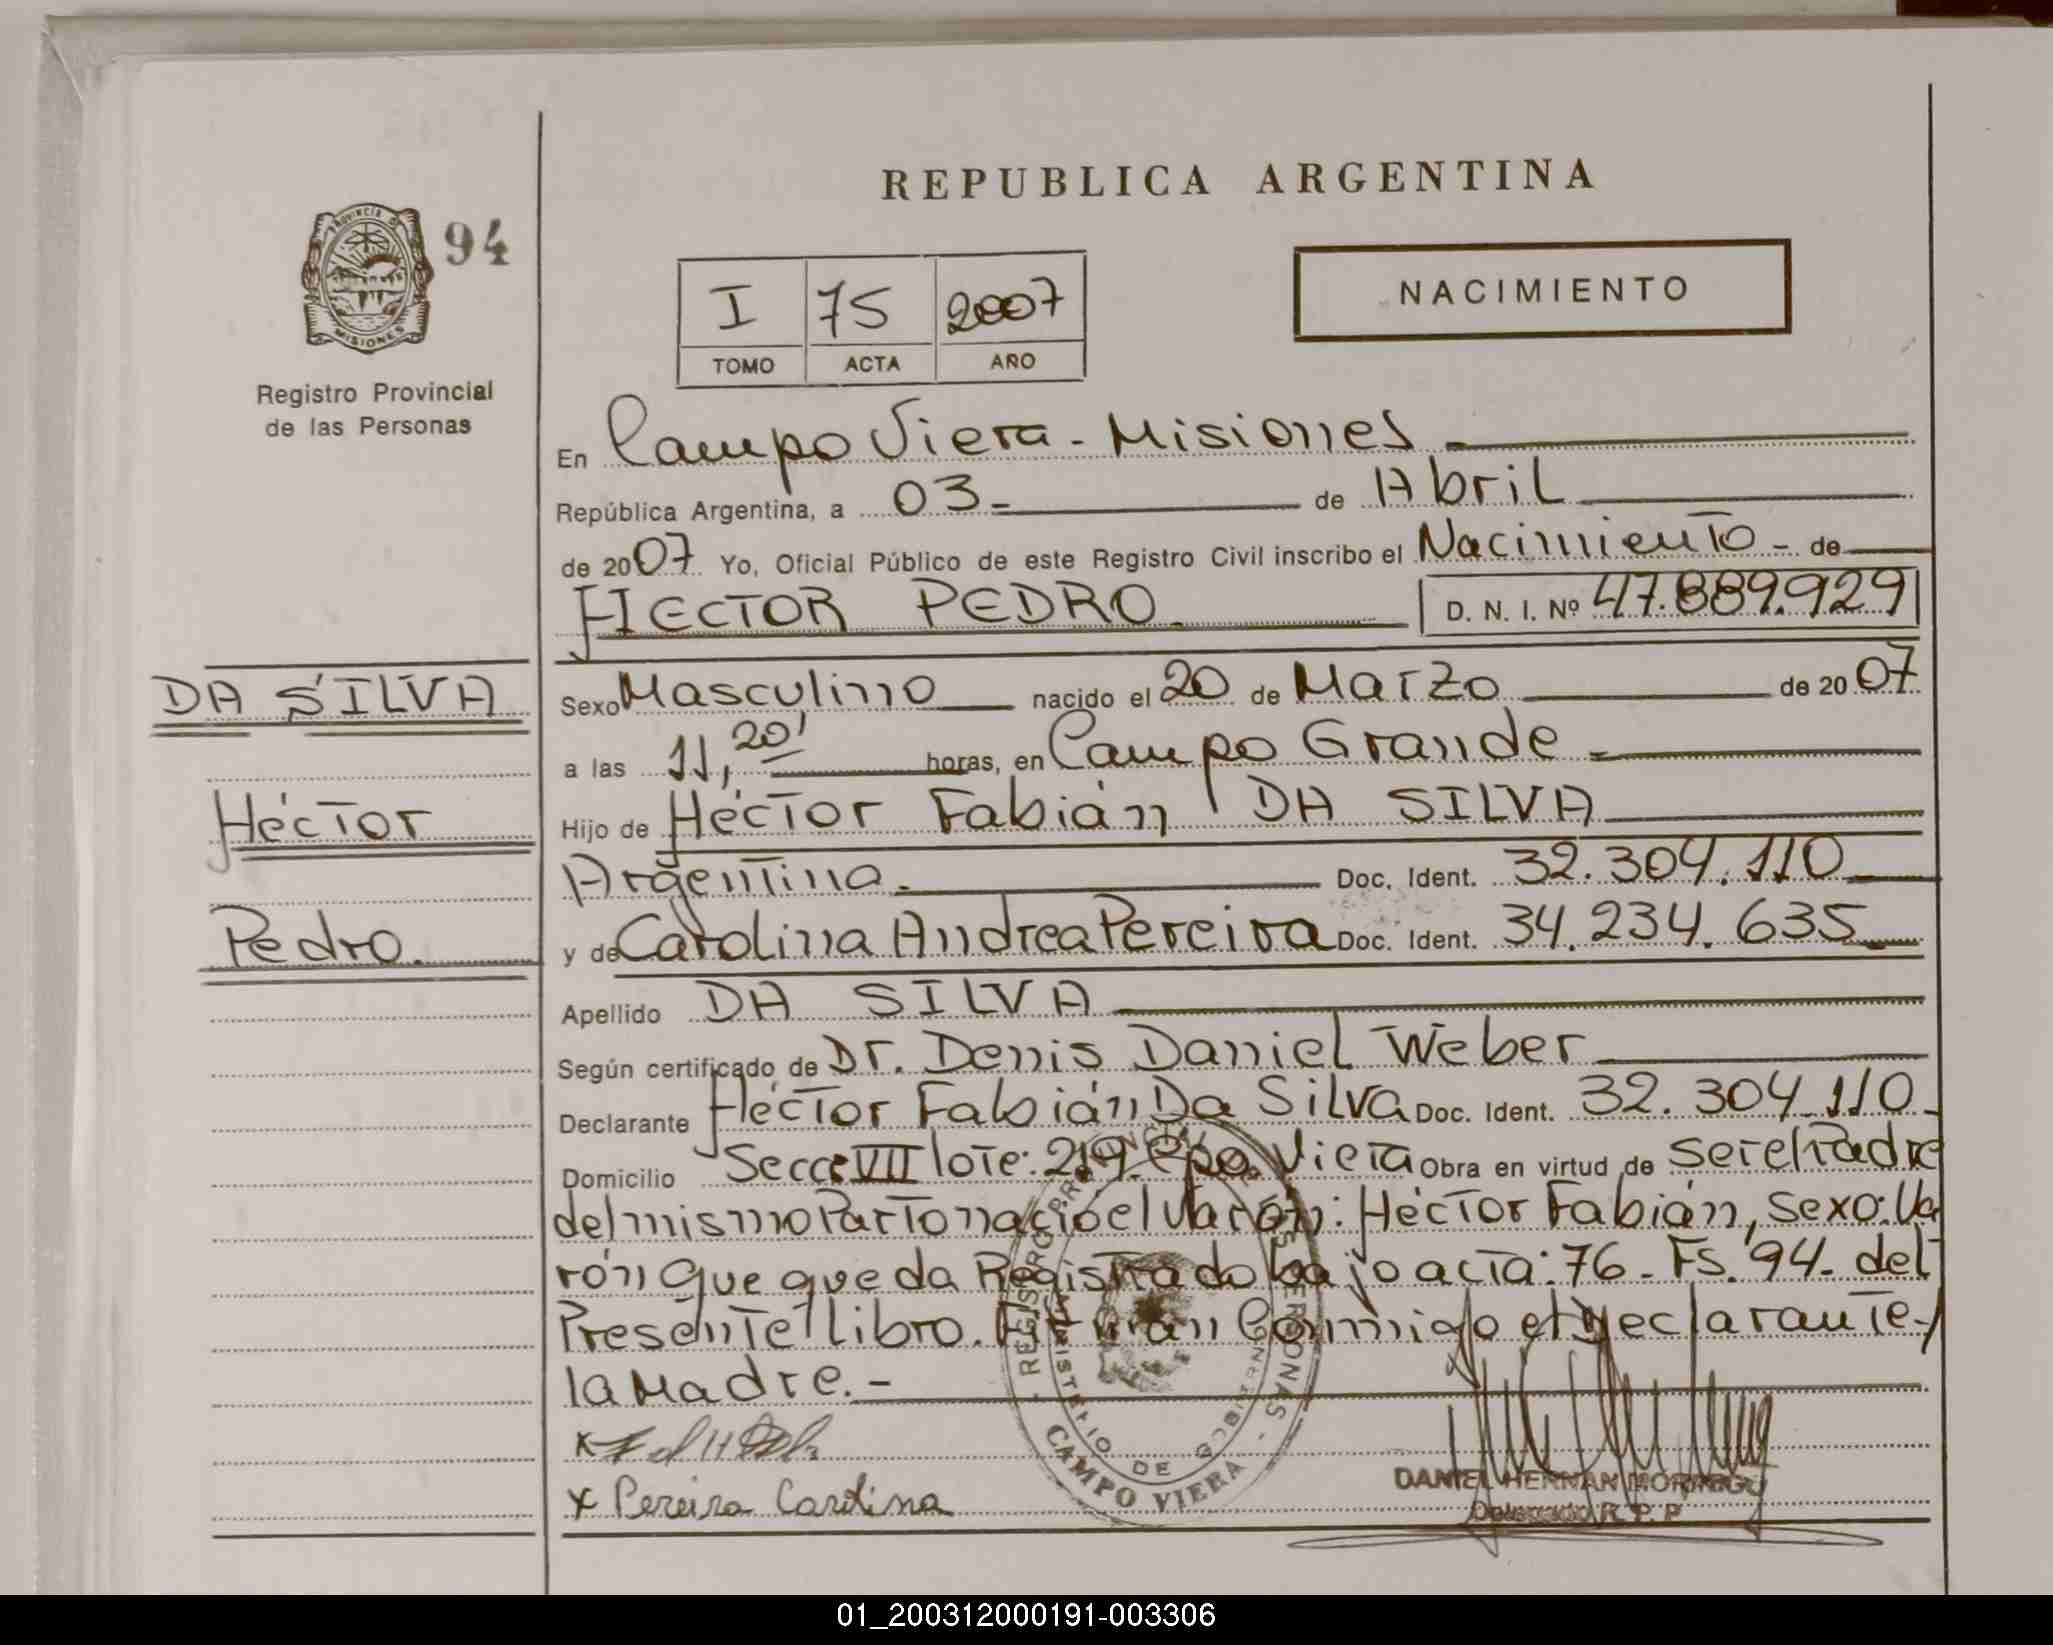 REPUBLICA ARGENTINA
PROVINCIA DE
MISIONES
94
Registro Provincial
de las Personas
I 75 2007
TOMO ACTA AÑO
NACIMIENTO
En Campo Viera - Misiones
República Argentina, a 03 de Abril
de 2007 Yo, Oficial Público de este Registro Civil inscribo el Nacimiento - de
HECTOR PEDRO D. N. I. Nº 47.889.929
DA SILVA
Héctor
Pedro.
Sexo Masculino nacido el 20 de Marzo de 2007
a las 11,20' horas, en Campo Grande
Hijo de Héctor Fabián DA SILVA
Argentina. Doc. Ident. 32.304.110
y de Carolina Andrea Pereira Doc. Ident. 34.234.635
Apellido DA SILVA
Según certificado de Dr. Denis Daniel Weber
Declarante Héctor Fabián Da Silva Doc. Ident. 32.304.110
Domicilio Secc: VII lote: 219. Cpo. Viera Obra en virtud de ser el Padre
del mismo Parto nació el Varón: Héctor Fabián, sexo: Va
rón que queda Registrado bajo acta: 76 - Fs. 94. del
Presente Libro. Firman Conmigo el declarante y
la Madre. -
x Pereira Carolina
REGISTRO PROVINCIAL DE LAS PERSONAS
MINISTERIO DE GOBIERNO
CAMPO VIERA
DANIEL HERNAN MORINIGO
Delegado R. P. P
01_200312000191-003306